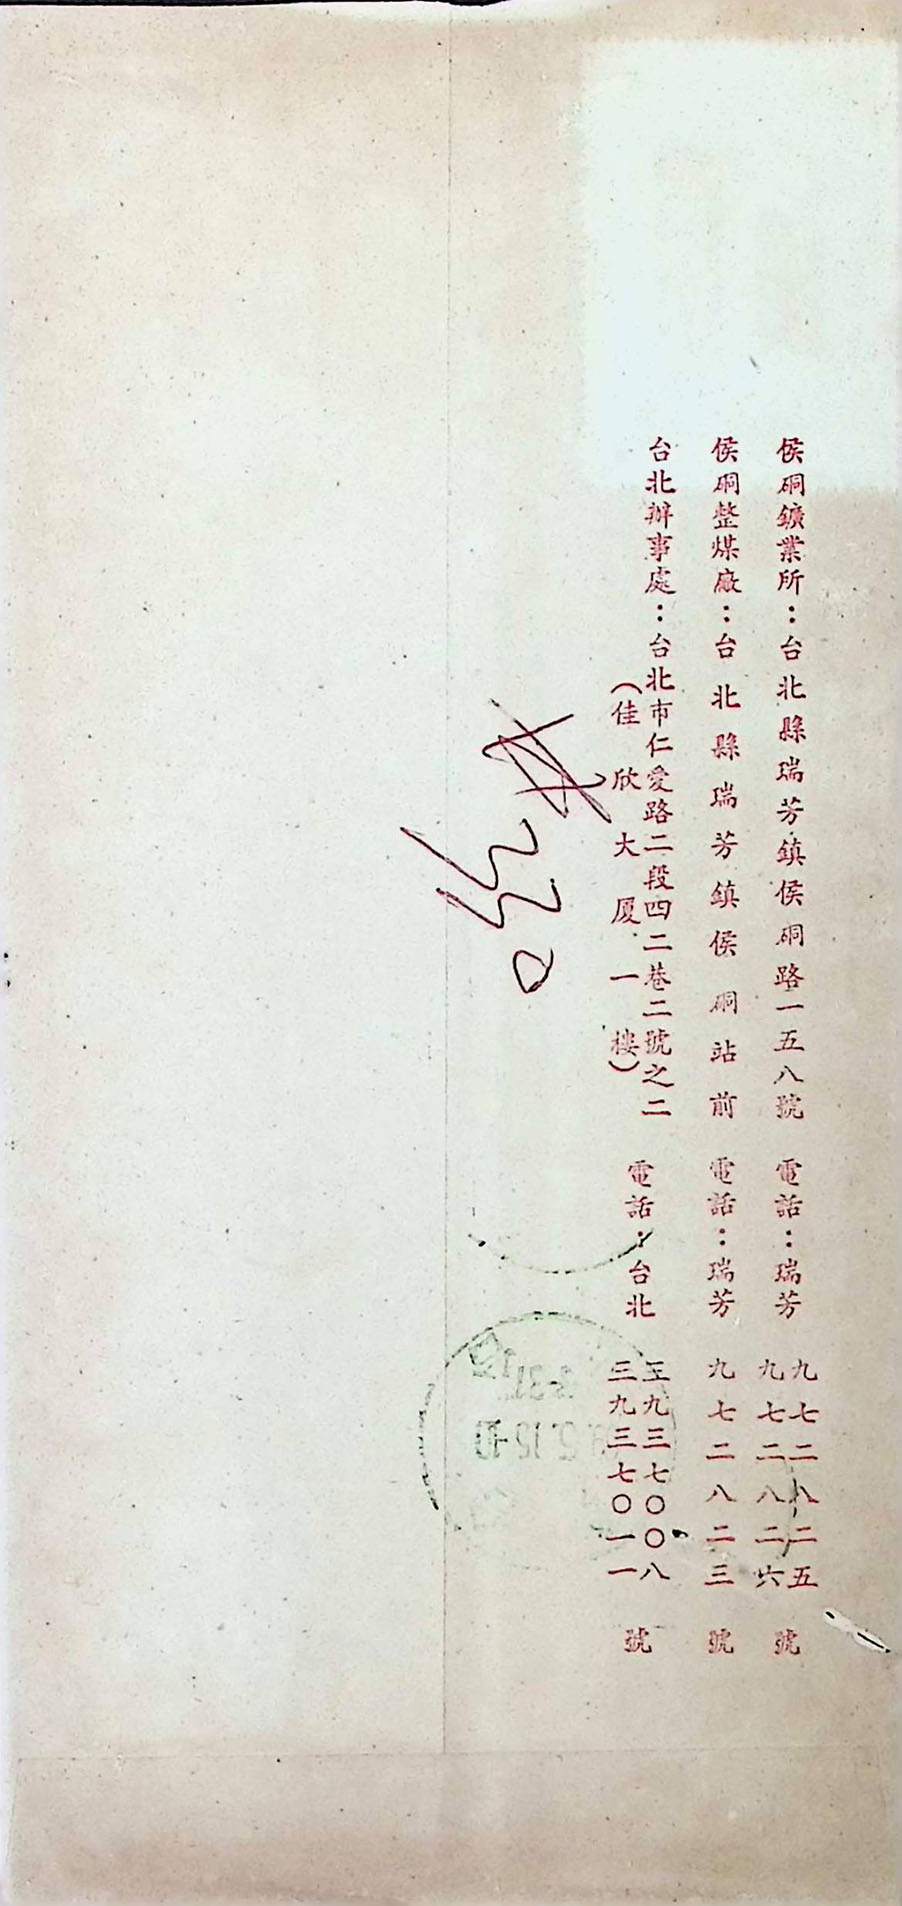 侯硐鑛業所：台北縣瑞芳鎮侯硐路一五八號　電話：瑞芳　九七二八二五　九七二八二六　號
侯硐整煤廠：台北縣瑞芳鎮侯硐站前　電話：瑞芳　九七二八二三　號
台北辦事處：台北市仁愛路二段四二巷二號之二（佳欣大厦一樓）　電話：台北　三九三七〇〇八　三九三七〇一一　號